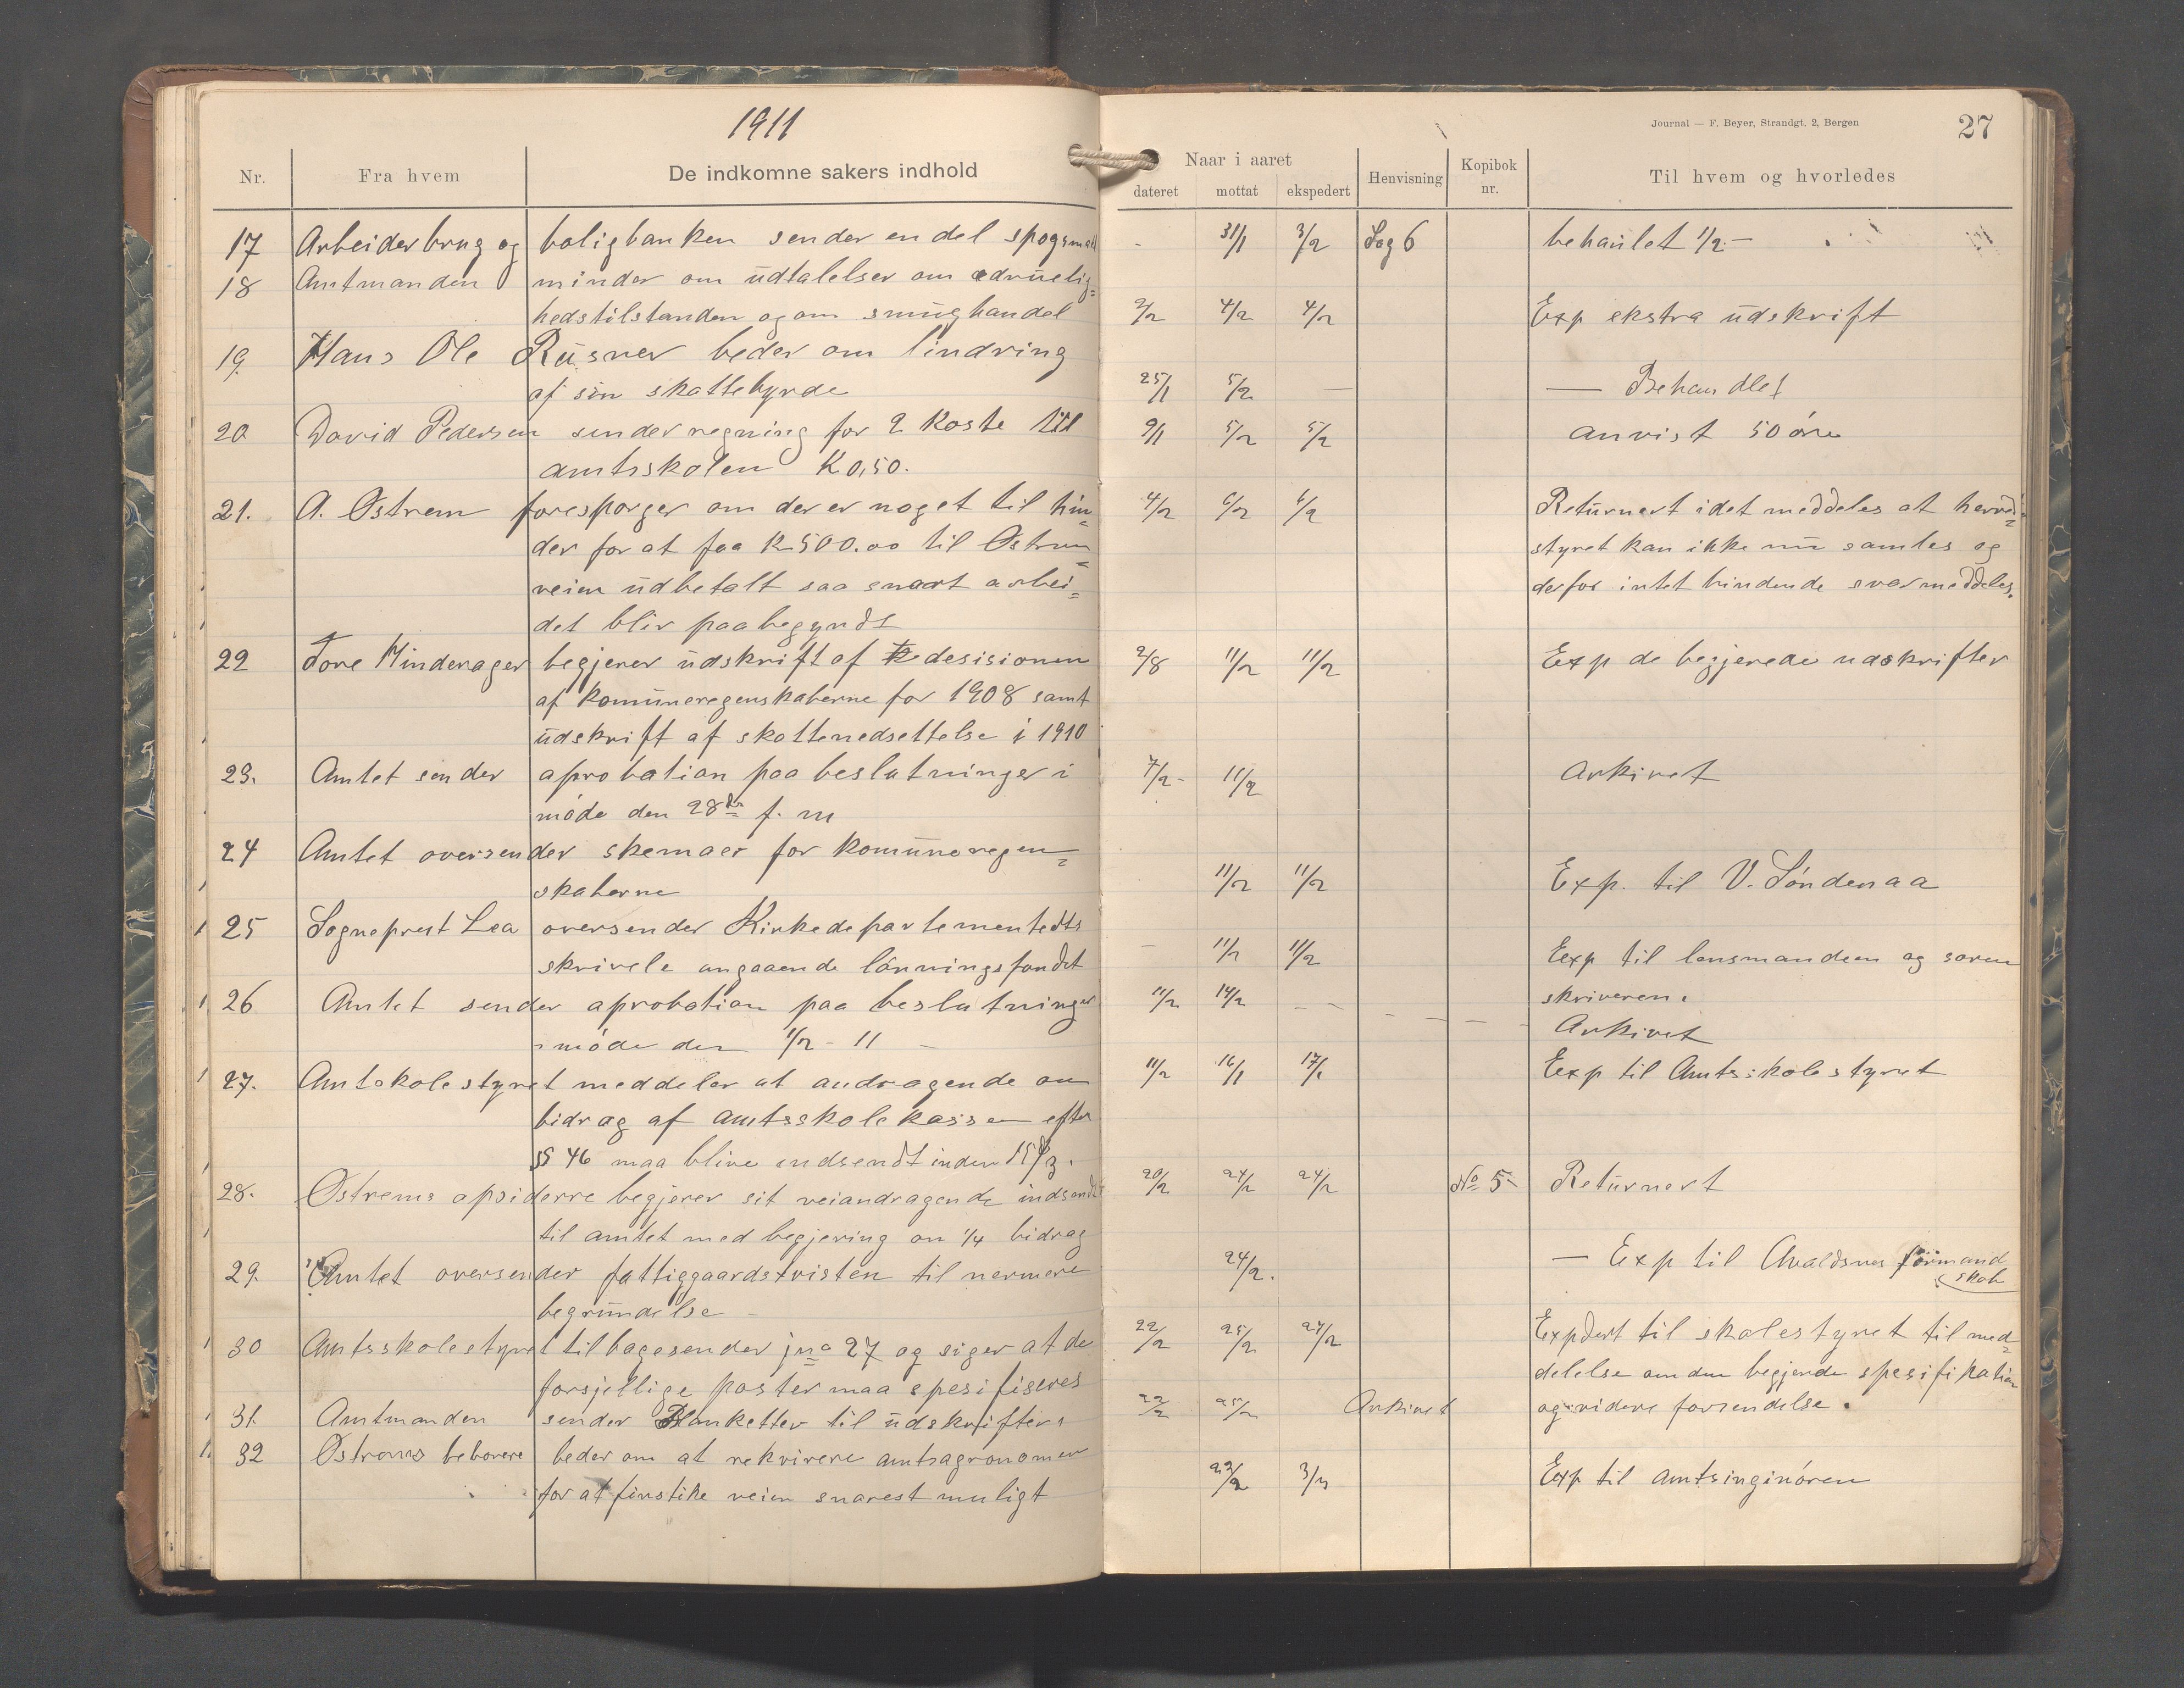 1911
Nr. Fra hvem De indkomne sakers indhold
17 Arbeiderbrug og boligbanken sender en del spogsmaal
18 Amtmanden minder om udtalelser om edruelig=
hedstilstanden og om smughandel
19 Hans Ole Rusner beder om lindring
af sin skattebyrde
20 David Pedersen sender regning for 2 koste til
amtsskolen K 0,50.
21. A. Østrem foresporger om der er noget til hin=
der for at faa K 500.00 til Østrem
veien udbetalt saa snart arbei=
det blir paabegyndt
22 Tore Mindenager begjerer udskrift af desisionen
af komuneregenskaberne for 1908 samt
udskrift af skattenedsettelse i 1910
23. Amtet sender aprobation paa beslutninger i
møde den 28de f. m
24 Amtet oversender skemaer for komuneregen=
skaberne
25 Sogneprest Lea oversender Kirkedepartementedts
skrivele angaaende lønningsfondet
26 Amtet sender aprobation paa beslutninger
i møde den 1/2 - 11 -
27. Amtskolestyret meddeler at andragende om
bidrag af amtsskolekassen efter
§ 46 maa blive indsendt inden 15/3.
28. Østrems opsiderre begjerer sit veiandragende indsendt
til amtet med begjering om 1/4 bidrag
29. Amtet oversender fattiggaardstvisten til nermere
begrundelse -
30 Amtsskolestyret tilbagesender jno 27 og siger at de
forsjellige poster maa spesifiseres
31. Amtmanden sender Blanketter til udskrifter
32 Østrems beboere beder om at rekvirere amtsagronomen
for at finstike veien snarest muligt
Journal — F. Beyer, Strandgt. 2, Bergen
27
Naar i aaret
dateret mottat ekspedert Henvisning Kopibok nr. Til hvem og hvorledes
- 31/1 3/2 Sag 6 behanlet 1/2 -
2/2 4/2 4/2 Exp ekstra udskrift
25/1 5/2 — — Behandlet
9/1 5/2 5/2 anvist 50 øre
4/2 6/2 6/2 Returnert idet meddeles at herreds=
styret kan ikke nu samles og
derfor intet bindende svar meddeles.
2/8 11/2 11/2 Exp de begjerede udskrifter
7/2 - 11/2 Arkivet
11/2 11/2 Exp. til V. Søndenaa
- 11/2 11/2 Exp til lensmanden og soren
skriveren.
11/2 14/2 - - - - - - Arkivet
11/2 16/1 17/1 Exp til Amtsskolestyret
20/2 24/2 24/2 No 5 - Returnert
24/2. — Exp til Avaldsnes formand
skab
22/2 25/2 27/2 Expdert til skolestyret til med=
delelse om den begjerde spesifikation
og videre forsendelse.
22/2 25/2 Arkivet
23/2 3/3 Exp til amtsinginøren